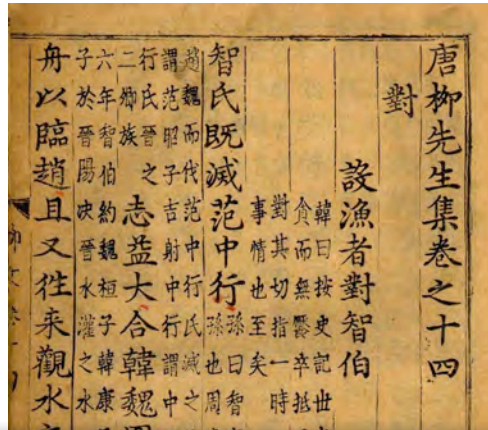 唐柳先生集卷之十四
對
設漁者對智伯
韓曰按史記世
貪而無饜卒抵
對其切指一時
事情也至矣
智氏既滅范中行
孫曰智
孫也周
趙魏而伐范中行氏滅之
謂范昭子吉射中行謂中
行氏晉之
二卿族
志益大合韓魏
六年智伯約魏桓子韓康
子於晉陽決晉水灌之水
舟以臨趙且又往来觀水